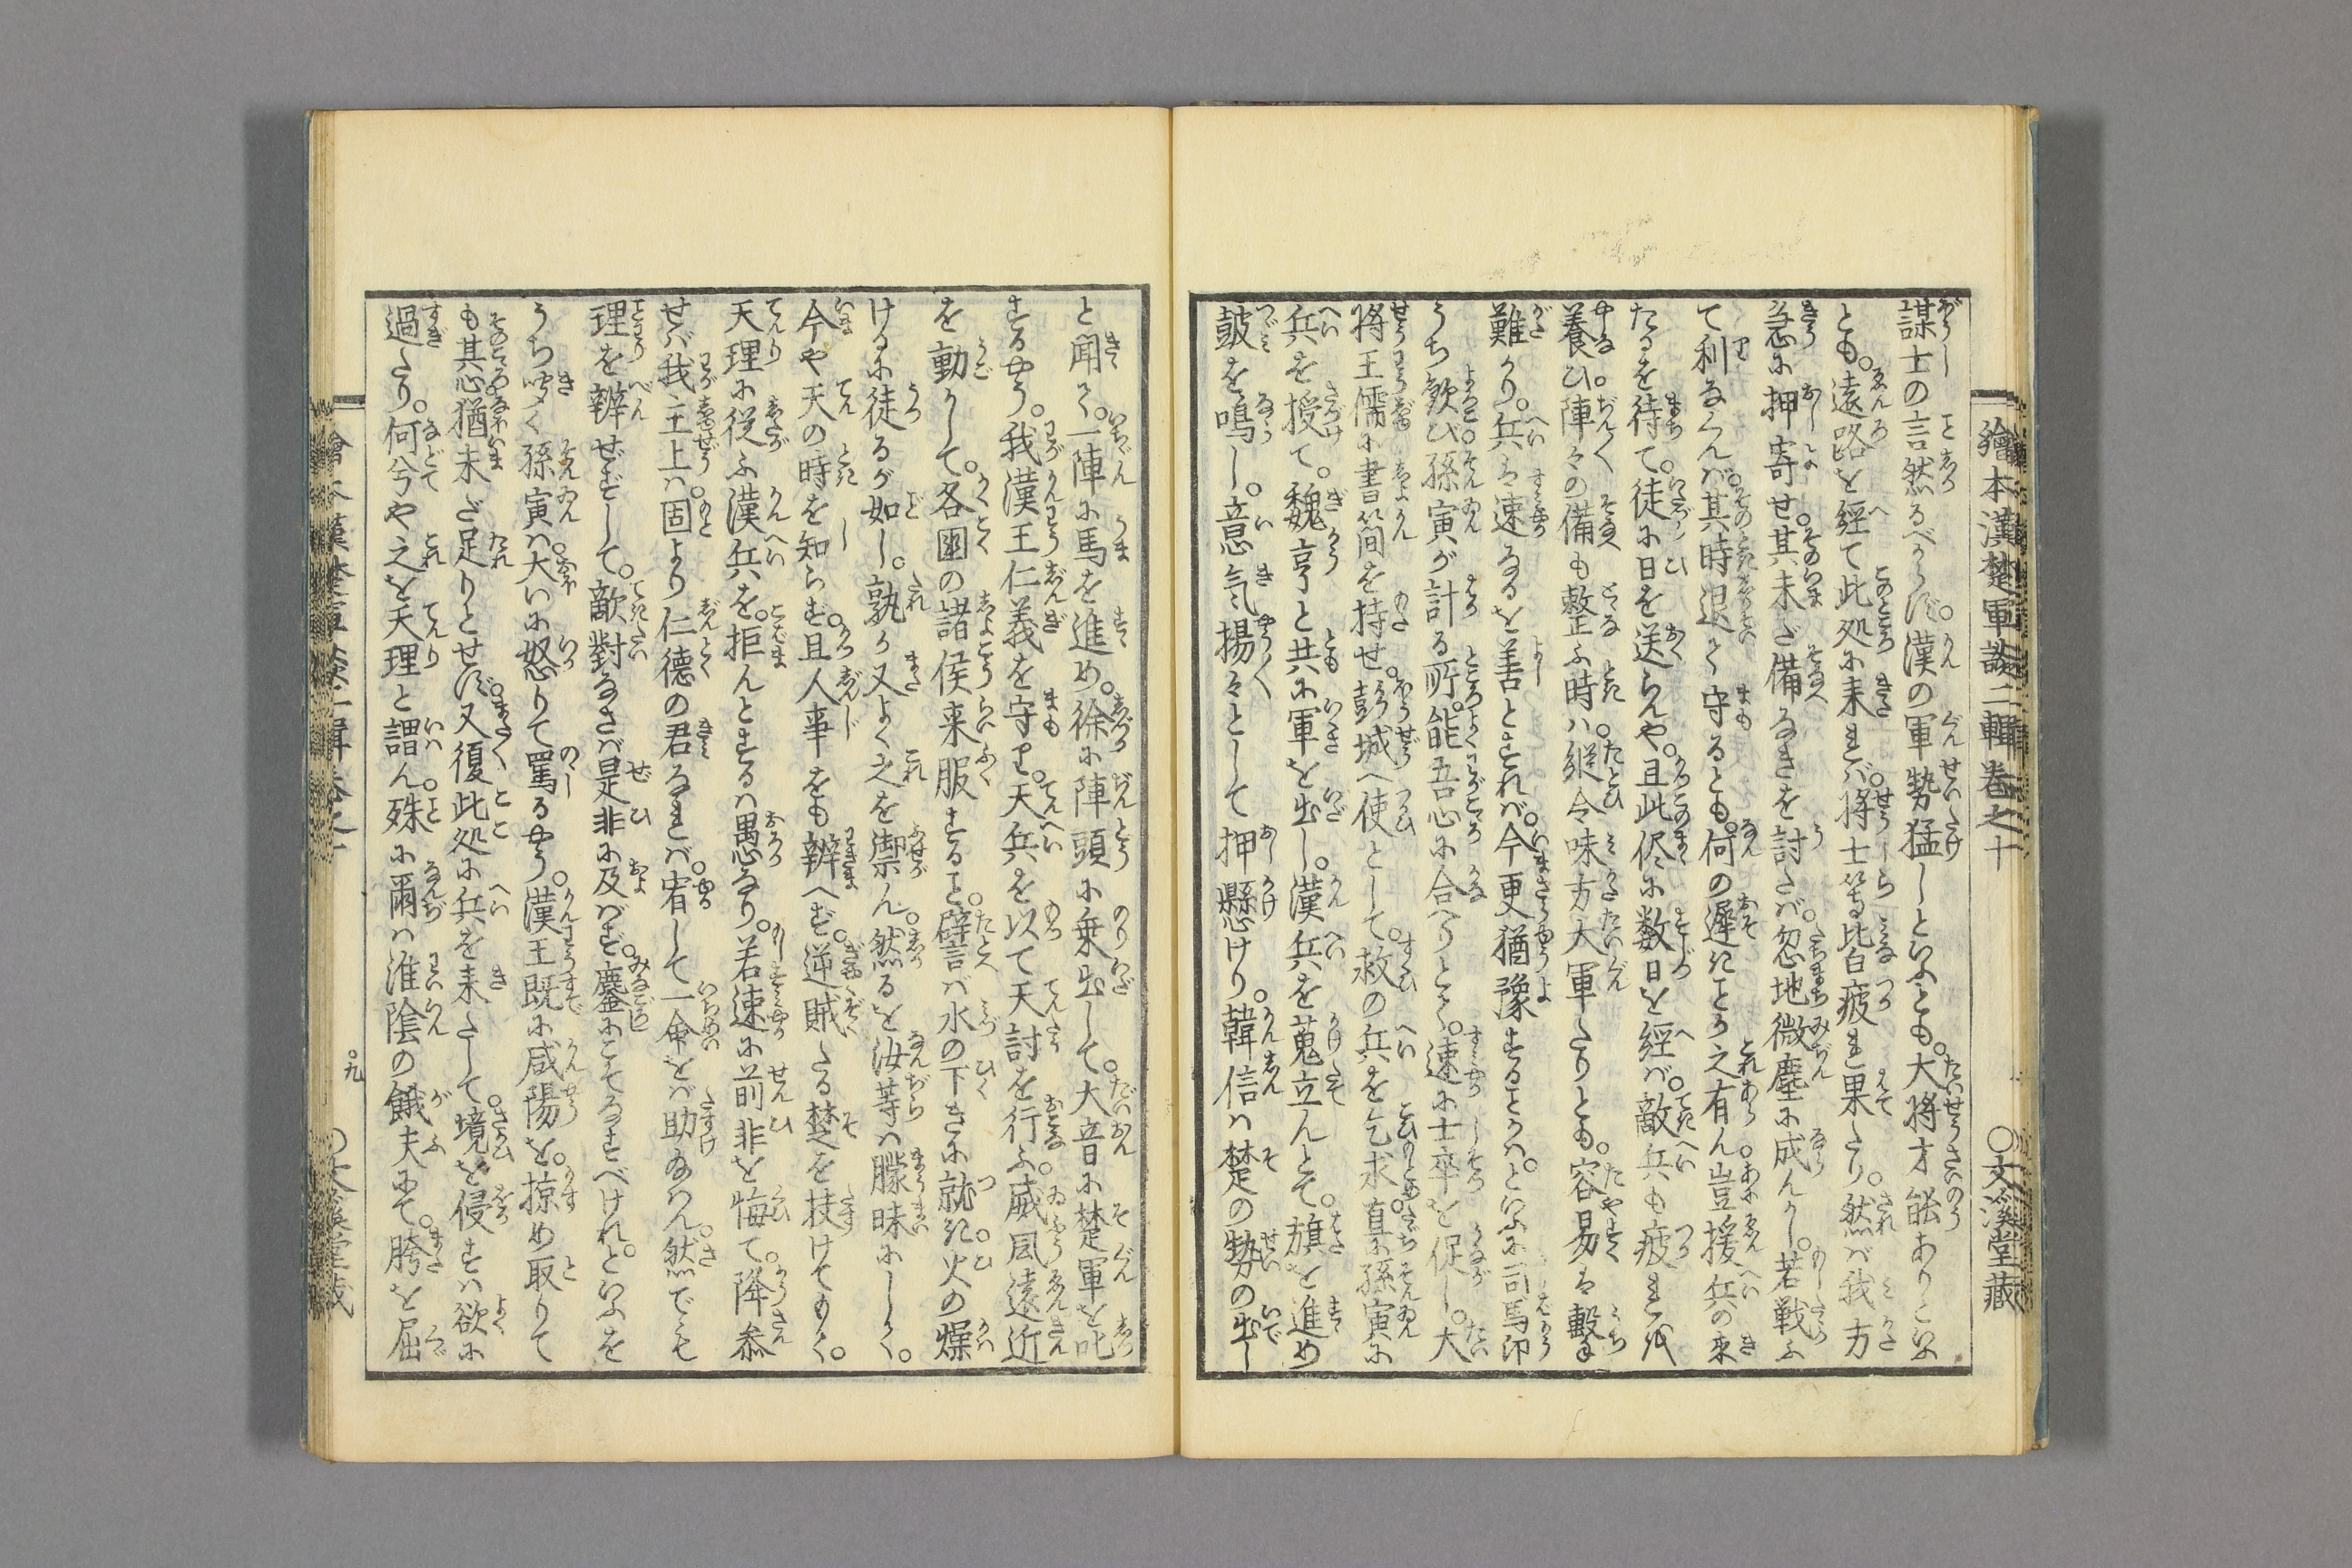 繪本漢楚軍談二輯巻之十　〇文溪堂藏
謀士の言然るべからず。漢の軍勢猛しといふとも。大将才能ありといふ
とも。遠路を経て此処に来れば。将士等皆疲れ果たり。然ば我方
急に押寄せ。其未だ備なきを討たば。忽地微塵に成んかし。若戦ふ
て利なくんば。其時退て守るとも。何の遅きことか之有ん。豈援兵の来
たるを待て。徒に日を送らんや。且此侭に数日を経ば。敵兵も疲れを
養ひ。陣々の備も整ふ時は。縦令味方大軍たりとも。容易は撃
難かり。兵は速なるを善とすれば。今更猶豫することかは。といふに司馬卬
うち歓び。孫寅が計る所。能吾心に合へりとて。速に士卒を促し。大
将王儒に書簡を持せ。彭城へ使として。救の兵を乞求。直に孫寅に
兵を授て。魏亨と共に軍を出し。漢兵を蒐立んとて。旗を進め
皷を鳴し。意気揚々として押懸けり。韓信は楚の勢の出し
と聞て。一陣に馬を進め。徐に陣頭に乗出して。大音に楚軍を叱
するやう。我漢王仁義を守り。天兵を以て天討を行ふ。威風遠近
を動かして。各國の諸侯来服すること。譬ば水の下きに就き。火の燥
けるに徒るが如し。孰か又よく之を禦ん。然るを汝等は朦昧にして。
今や天の時を知らず。且人事をも辨へず。逆賊たる楚を扶けてもて。
天理に従ふ漢兵を。拒んとするは愚なり。若速に前非を悔て。降参
せば我主上は。固より仁徳の君なれば。宥して一命をば助なん。然でも
理を辨ぜずして。敵對なさば是非に及ばず。鏖にこそなすべけれ。といふを
うち聞く孫寅は。大いに怒りて罵るやう。漢王既に咸陽を。掠め取りて
も其心。猶未だ足りとせず。又復此処に兵を来たして。境を侵すは欲に
過たり。何ぞ今や之を天理と謂ん。殊に爾は淮陰の餓夫にて。胯を屈
繪本漢楚軍談二輯巻之十　〇九　〇文溪堂藏